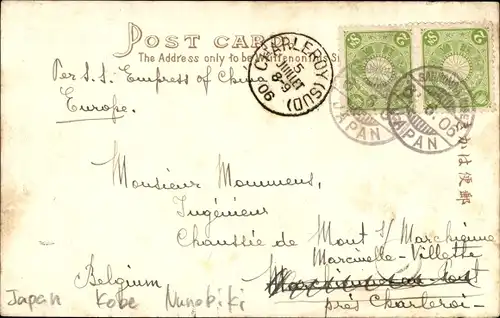 POST CARD
The Address only to be Written on this Si
Per S.S. Empress of China
Europe.
CHARLEROY (SUD)
5
JUILLET
8-9
06
JAPAN
JAPAN
06
きかは便郵
Monsieur Mommens,
Ingénieur
Chaussée de Mont s/ Marchienne
Marcinelle-Villette
Belgium
près Charleroi-
Japan Kobe Nunobiki